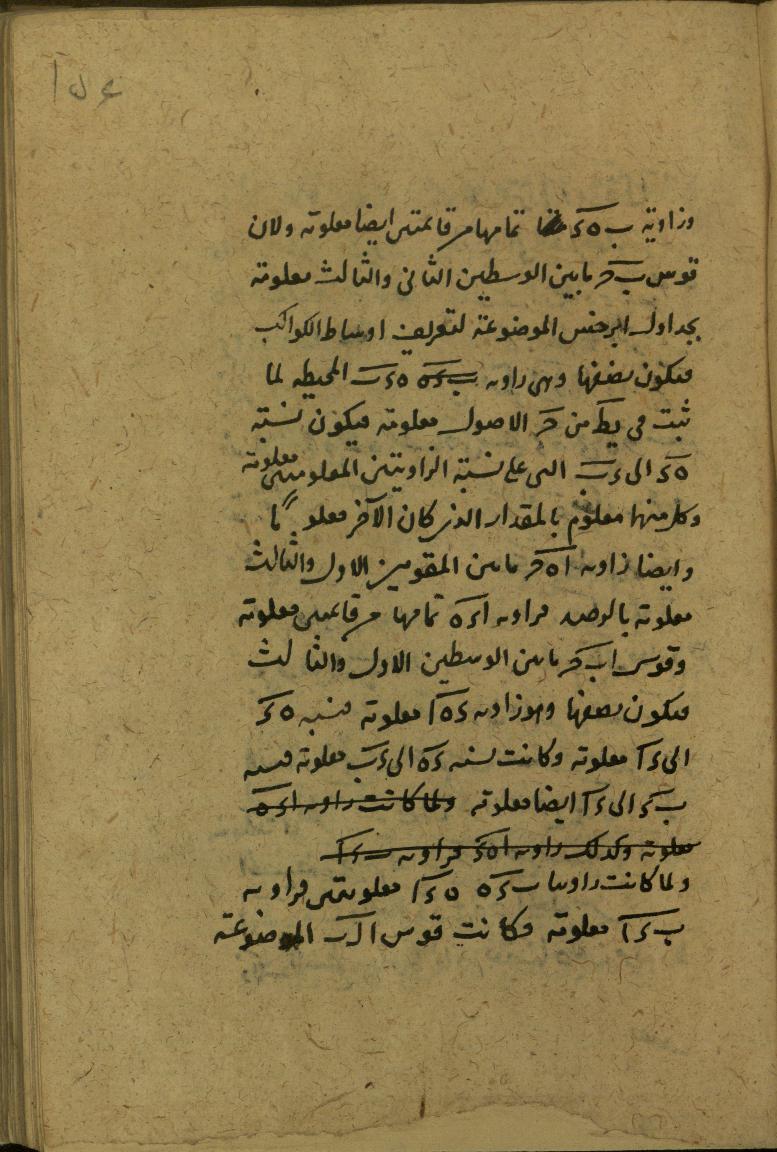 وزاوية ب ه ء تمامها من قائمتين ايضا معلومة ولان
قوس ب حر ما بين الوسطين الثاني والثالث معلومة
بجداول ابرخس الموضوعة لتعريف اوساط الكواكب
فيكون نصفها وهي زاوية ه ء ب المحيطة لما
ثبت في يط من حر الاصول معلومة فيكون نسبة
ه ء الى ء ب التي على نسبة الزاويتين المعلومتين معلومة
وكل منهما معلوم بالمقدار الذي كان الآخر معلوما
وايضا زاوية ا ه حر ما بين المقومين الاول والثالث
معلومة بالرصد فزاوية ا ء ه تمامها من قائمتين معلومة
وقوس ا ب حر ما بين الوسطين الاول والثالث
فيكون نصفها وهو زاوية ه ء ا معلومة فنسبة ه ء
الى ء ا معلومة وكانت نسبة ء ه الى ء ب معلومة فنسبة
ب ء الى ء ا ايضا معلومة ولما كانت زاوية ا ء ه
معلومة وكذلك زاوية ا ه ء فزاوية ب ء ا
ولما كانت زاويتا ب ء ه ه ء ا معلومتين فزاوية
ب ء ا معلومة فكانت قوس ا ب الموضوعة